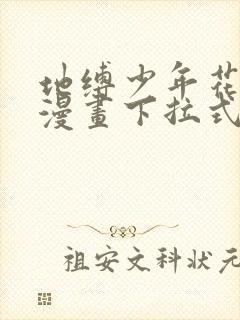 地缚少年花
漫畫下拉式
祖安文科状元